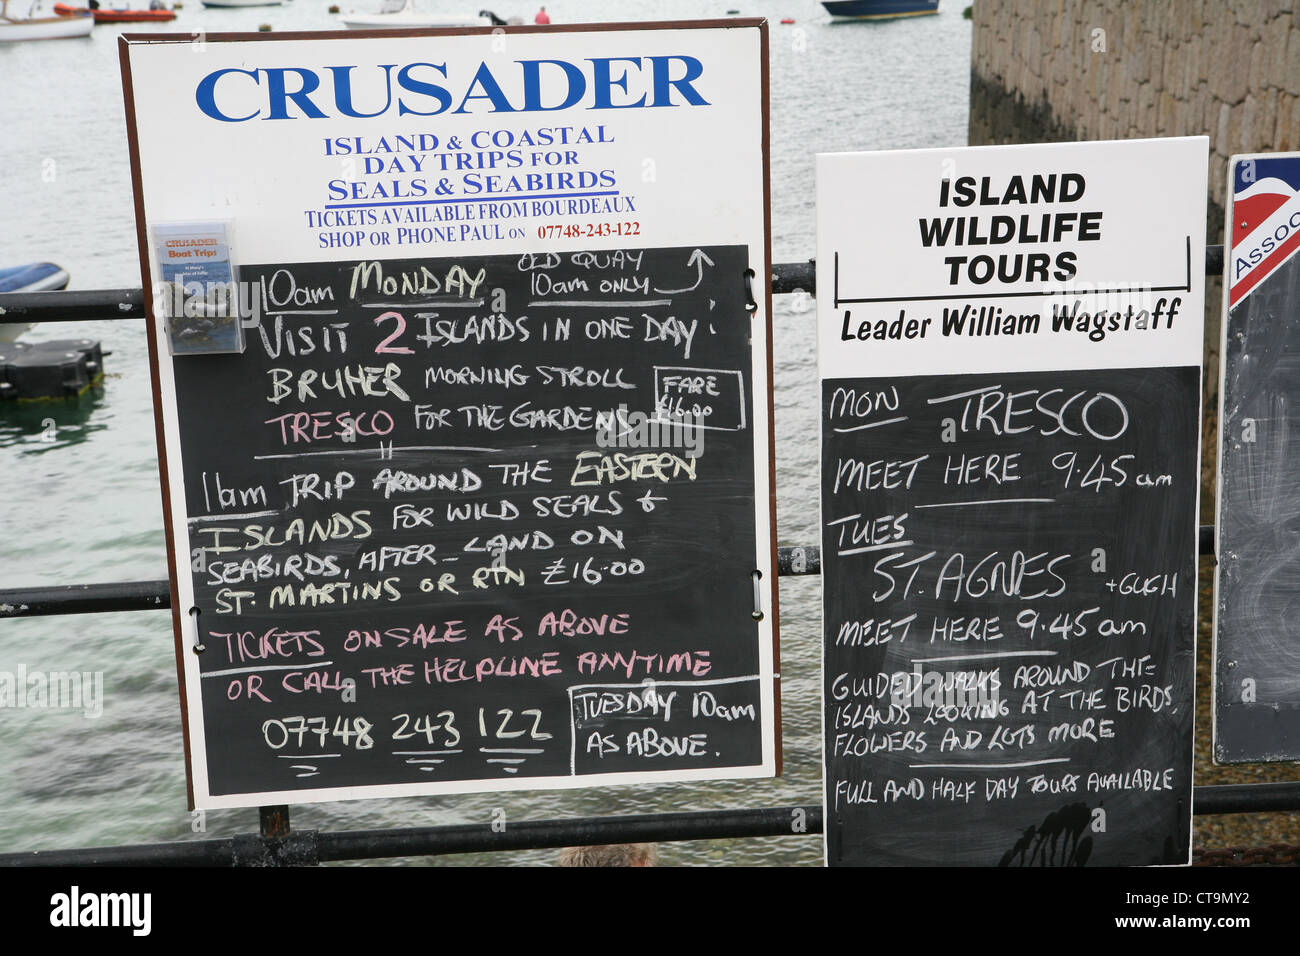 CRUSADER
ISLAND & COASTAL
DAY TRIPS FOR
SEALS & SEABIRDS
TICKETS AVAILABLE FROM BOURDEAUX
SHOP OR PHONE PAUL ON 07748-243-122
CRUSADER
Boat Trips
10am MONDAY OLD QUAY
10am ONLY
VISIT 2 ISLANDS IN ONE DAY:
BRYHER MORNING STROLL
TRESCO FOR THE GARDENS
FARE
£16.00
11am TRIP AROUND THE EASTERN
ISLANDS FOR WILD SEALS +
SEABIRDS, AFTER - LAND ON
ST. MARTINS OR RTN £16.00
TICKETS ON SALE AS ABOVE
OR CALL THE HELPLINE ANYTIME
07748 243 122
TUESDAY 10am
AS ABOVE.
ISLAND
WILDLIFE
TOURS
Leader William Wagstaff
MON TRESCO
MEET HERE 9.45am
TUES
ST. AGNES + GUGH
MEET HERE 9.45am
GUIDED WALKS AROUND THE
ISLANDS LOOKING AT THE BIRDS,
FLOWERS AND LOTS MORE
FULL AND HALF DAY TOURS AVAILABLE
ASSOC
alamy
Image ID: CT9MY2
www.alamy.com